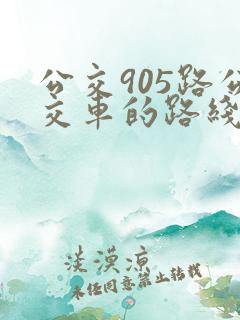 公交905路公
交车的路线
淡漠凉
未经同意禁止转载